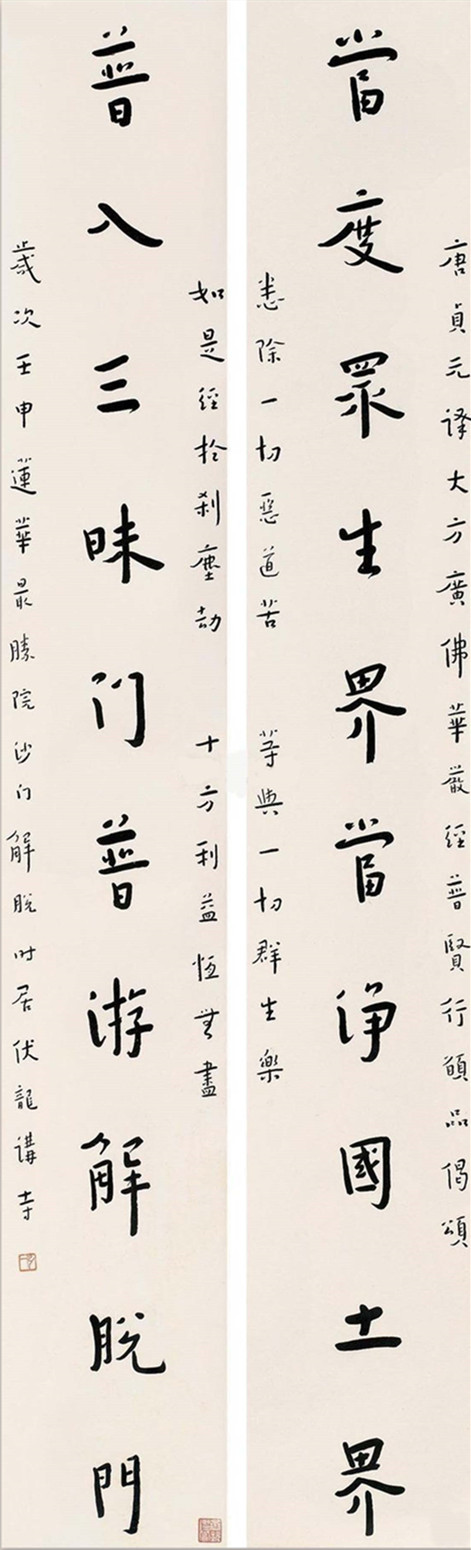 唐貞元译大方廣佛華嚴經普賢行願品偈頌
當度眾生界當淨國土界
悉除一切惡道苦 等與一切群生樂
如是經於刹塵劫 十方利益恒無盡
普入三昧门普游解脫門
歲次壬申蓮華最勝院沙门解脫时居伏龍講寺